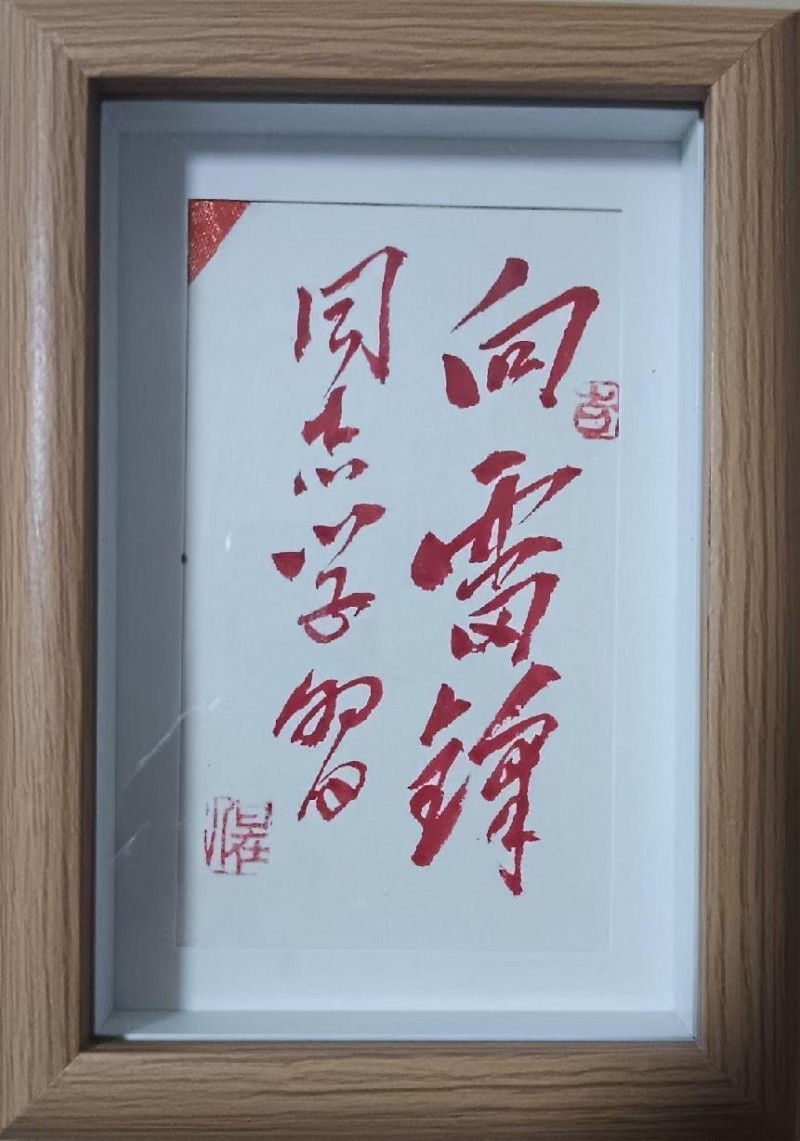 向雷锋
同志学习